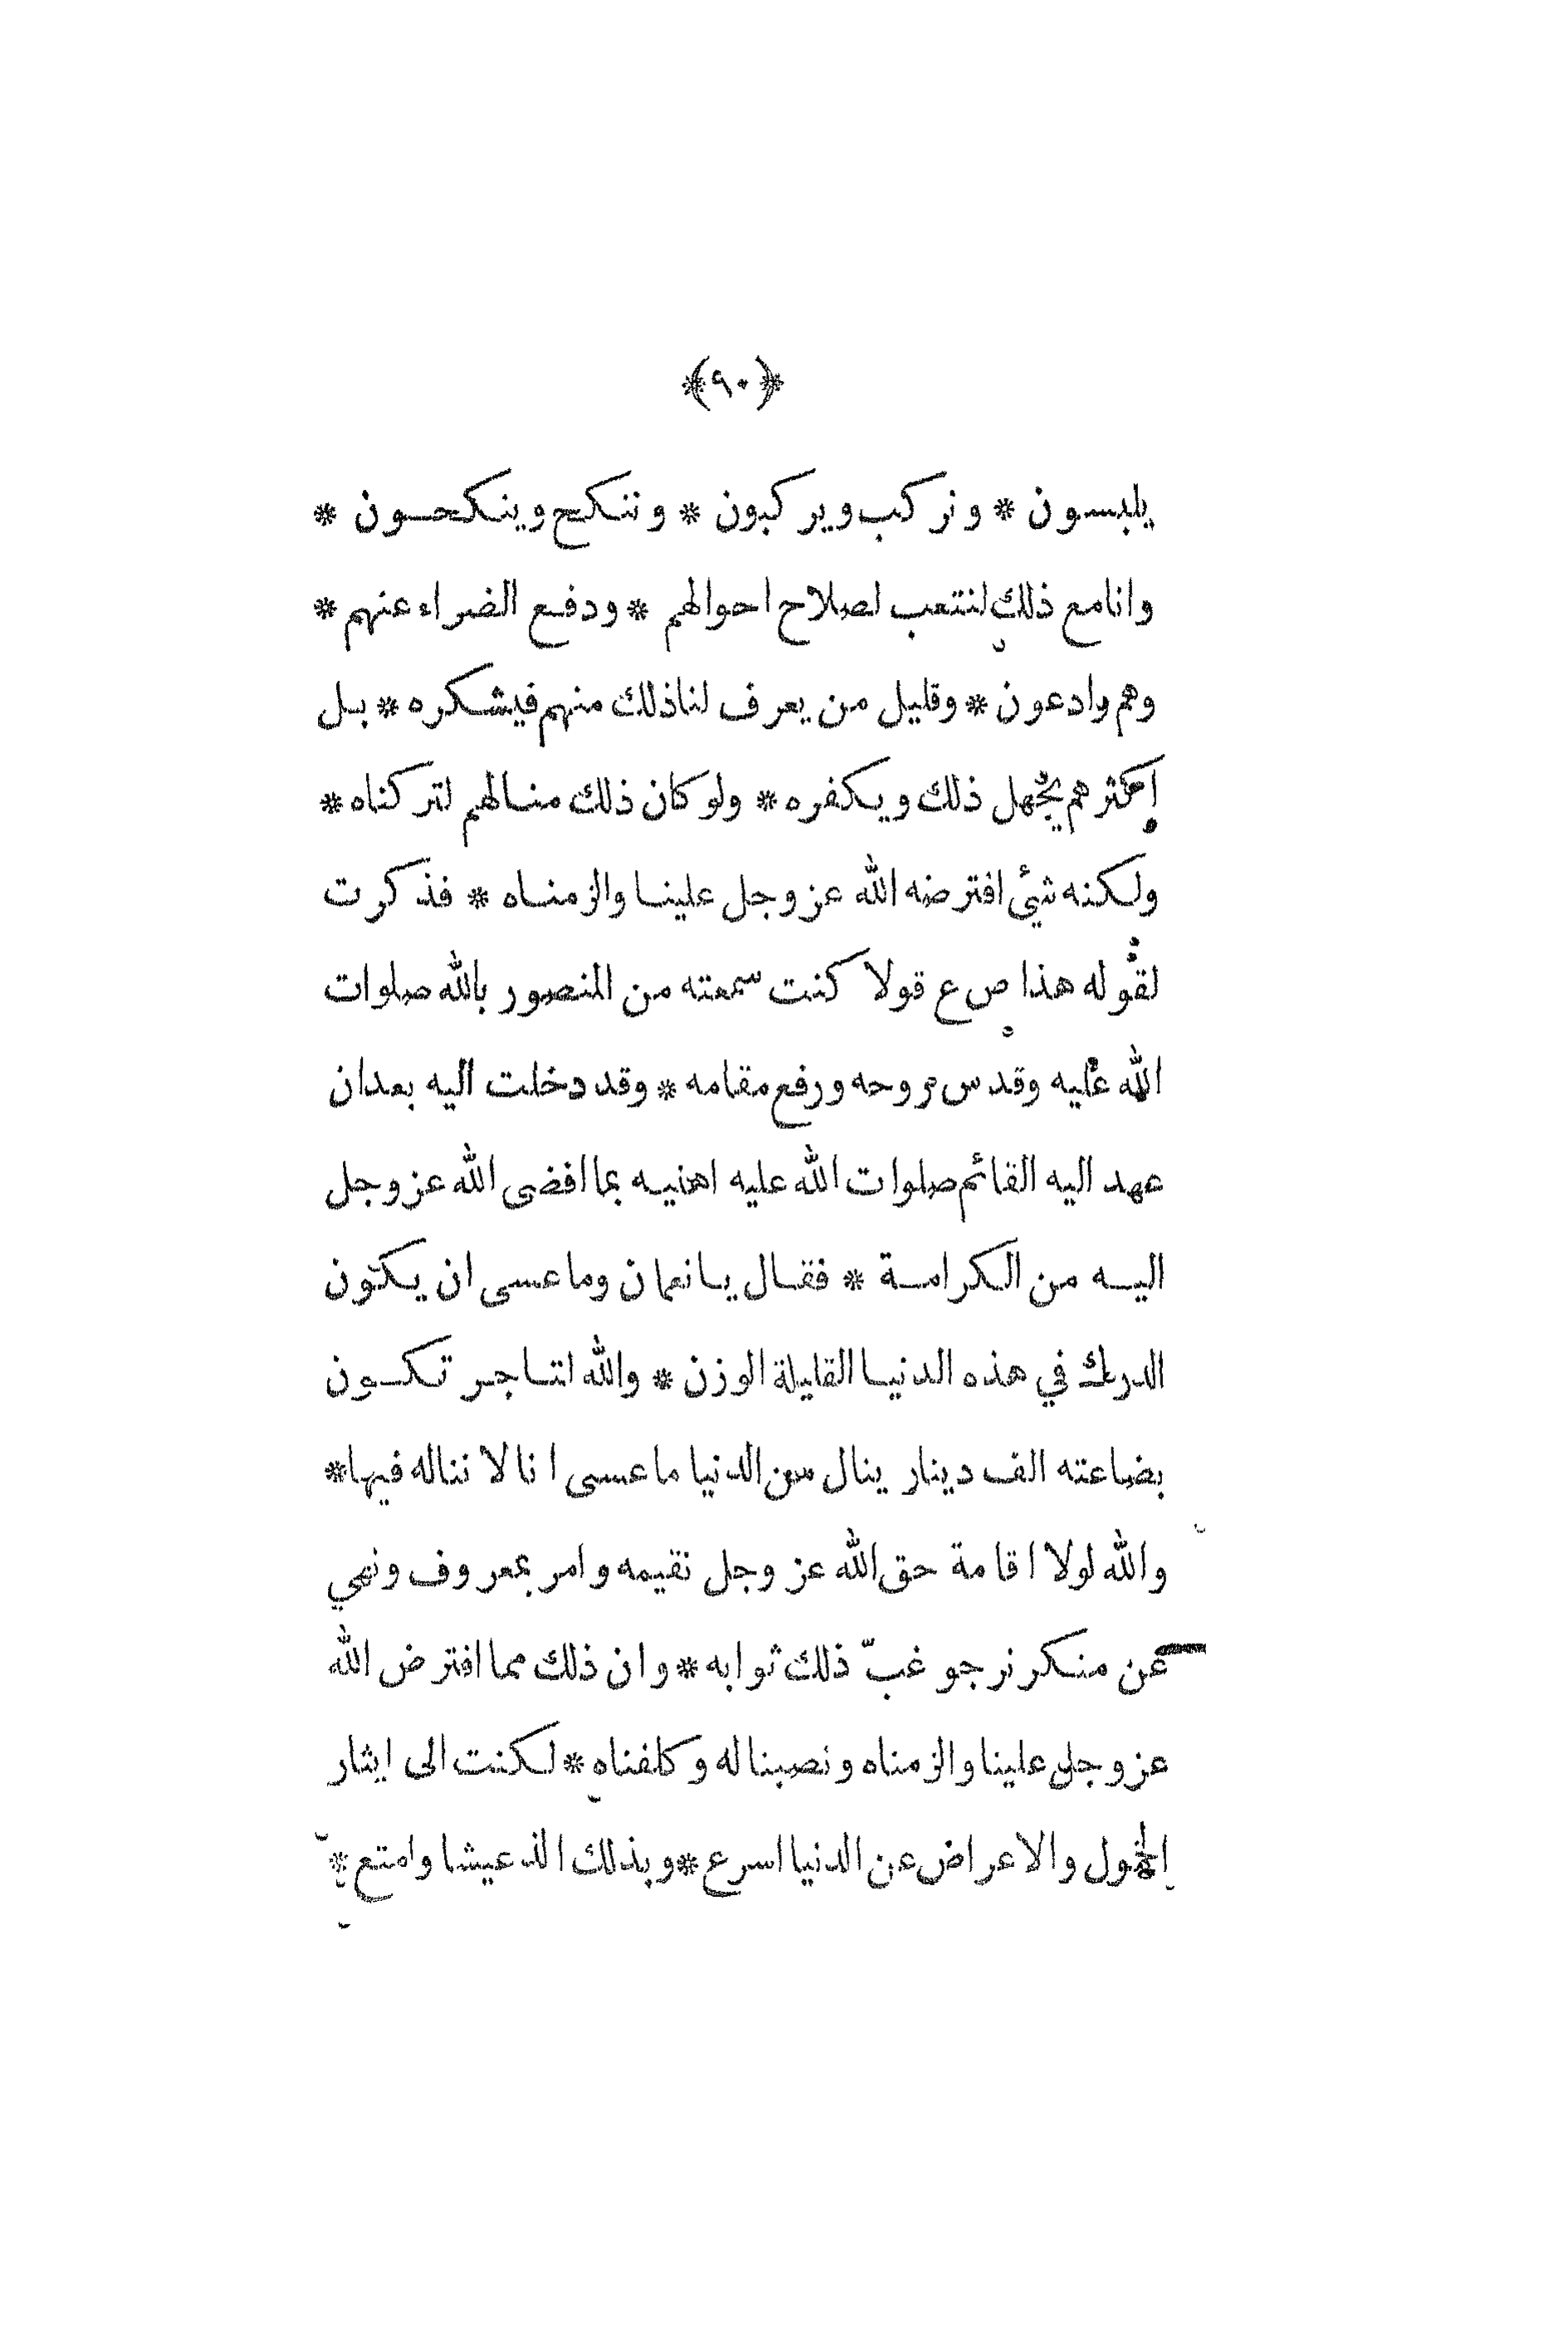 ﴿٩٠﴾
يلبسون * ونركب ويركبون * وننكح وينكحون *
وانا مع ذلك لنتعب لصلاح احوالهم * ودفع الضراء عنهم *
وهم وادعون * وقليل من يعرف لنا ذلك منهم فيشكره * بل
اكثرهم يجهل ذلك ويكفره * ولو كان ذلك منا لهم لتركناه *
ولكنه شيئ افترضه الله عز وجل علينا والزمناه * فذكرت
لقوله هذا ص ع قولا كنت سمعته من المنصور بالله صلوات
الله عليه وقدس روحه ورفع مقامه * وقد دخلت اليه بعد ان
عهد اليه القائم صلوات الله عليه اهنيه بما افضى الله عز وجل
اليه من الكرامة * فقال يا نعمان وما عسى ان يكون
الدرك في هذه الدنيا القليلة الوزن * والله لتاجر تكون
بضاعته الف دينار ينال من الدنيا ما عسى انا لا نناله فيها *
والله لولا اقامة حق الله عز وجل نقيمه وامر بمعروف ونهي
عن منكر نرجو غبّ ذلك ثوابه * وان ذلك مما افترض الله
عز وجل علينا والزمناه ونصبنا له وكلفناه * لكنت الى ايثار
الخمول والاعراض عن الدنيا اسرع * وبذلك الذ عيشا وامتع *